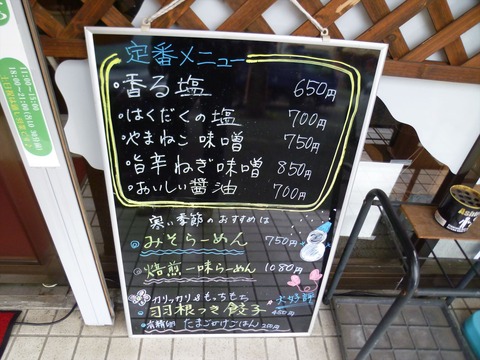 定番メニュー
・香る塩 650円
・はくだくの塩 700円
・やまねこ味噌 750円
・旨辛ねぎ味噌 850円
・おいしい醤油 700円
寒い季節のおすすめは
みそらーめん 750円
焙煎一味らーめん 1080円
カリッカリ&もっちもち 大好評
羽根つき餃子 480円
たまごかけごはん 250円